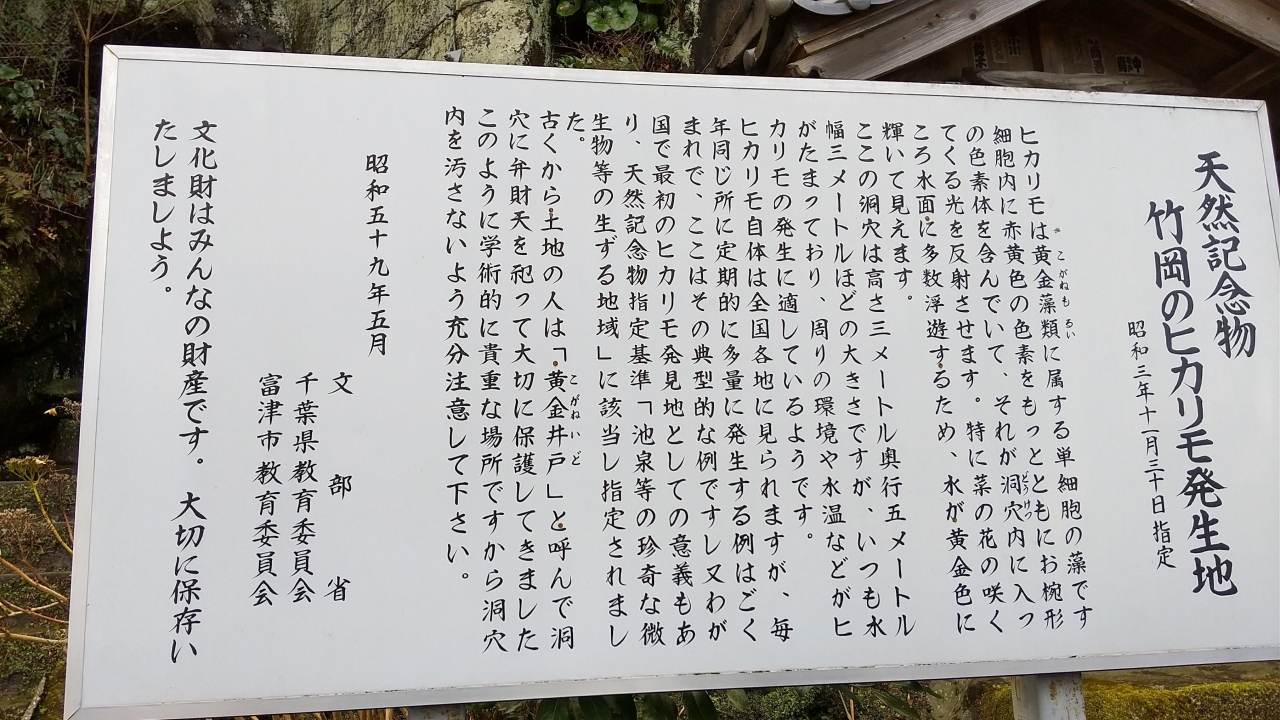 天然記念物
竹岡のヒカリモ発生地
昭和三年十一月三十日指定
ヒカリモは黄金藻類に属する単細胞の藻です
こがねもるい
細胞内に赤黄色の色素をもっとともにお椀形
の色素体を含んでいて、それが洞穴内に入っ
どうけつ
てくる光を反射させます。特に菜の花の咲く
ころ水面に多数浮遊するため、水が黄金色に
輝いて見えます。
ここの洞穴は高さ三メートル奥行五メートル
幅三メートルほどの大きさですが、いつも水
がたまっており、周りの環境や水温などがヒ
カリモの発生に適しているようです。
ヒカリモ自体は全国各地に見られますが、毎
年同じ所に定期的に多量に発生する例はごく
まれで、ここはその典型的な例ですし又わが
国で最初のヒカリモ発見地としての意義もあ
り、天然記念物指定基準「池泉等の珍奇な微
生物等の生ずる地域」に該当し指定されまし
た。
古くから土地の人は「黄金井戸」と呼んで洞
こがねいど
穴に弁財天を祀って大切に保護してきました
このように学術的に貴重な場所ですから洞穴
内を汚さないよう充分注意して下さい。
昭和五十九年五月
文部省
千葉県教育委員会
富津市教育委員会
文化財はみんなの財産です。大切に保存い
たしましよう。